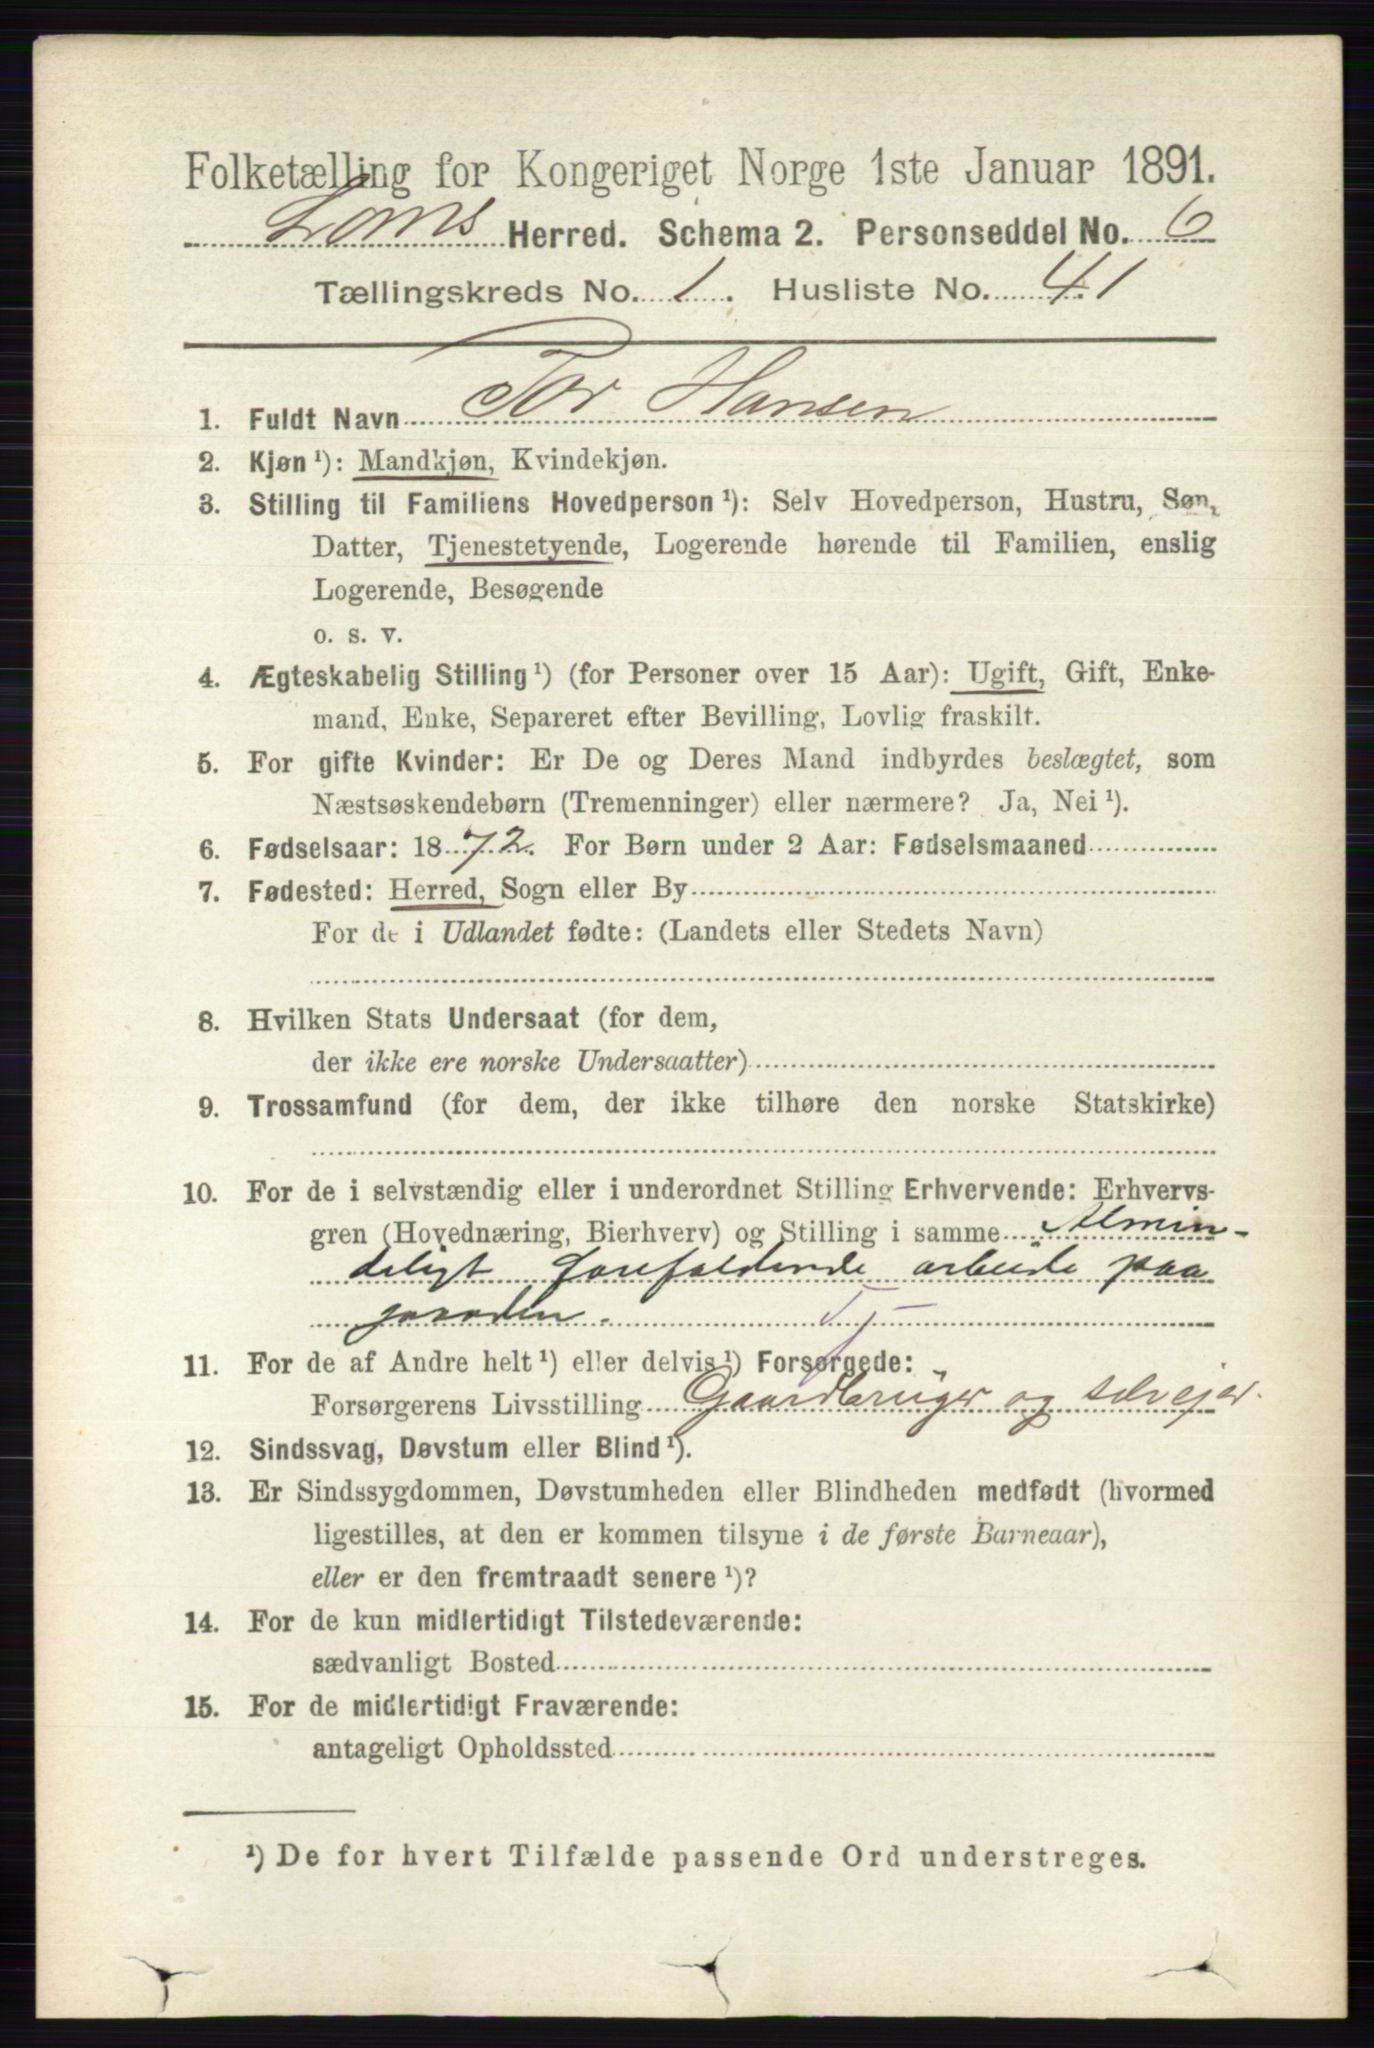 Folketælling for Kongeriget Norge 1ste Januar 1891.
Loms Herred. Schema 2. Personseddel No. 6
Tællingskreds No. 1. Husliste No. 41
1. Fuldt Navn Tor Hansen
2. Kjøn ¹): Mandkjøn, Kvindekjøn.
3. Stilling til Familiens Hovedperson ¹): Selv Hovedperson, Hustru, Søn,
Datter, Tjenestetyende, Logerende hørende til Familien, enslig
Logerende, Besøgende
o. s. v.
4. Ægteskabelig Stilling ¹) (for Personer over 15 Aar): Ugift, Gift, Enke-
mand, Enke, Separeret efter Bevilling, Lovlig fraskilt.
5. For gifte Kvinder: Er De og Deres Mand indbyrdes beslægtet, som
Næstsøskendebørn (Tremenninger) eller nærmere? Ja, Nei ¹).
6. Fødselsaar: 1872. For Børn under 2 Aar: Fødselsmaaned
7. Fødested: Herred, Sogn eller By
For de i Udlandet fødte: (Landets eller Stedets Navn)
8. Hvilken Stats Undersaat (for dem,
der ikke ere norske Undersaatter)
9. Trossamfund (for dem, der ikke tilhøre den norske Statskirke)
10. For de i selvstændig eller i underordnet Stilling Erhvervende: Erhvervs-
gren (Hovednæring, Bierhverv) og Stilling i samme Almin-
deligt forefaldende arbeide paa
gaarden. Tj
11. For de af Andre helt ¹) eller delvis ¹) Forsørgede:
Forsørgerens Livsstilling Gaardbruger og selvejer.
12. Sindssvag, Døvstum eller Blind ¹).
13. Er Sindssygdommen, Døvstumheden eller Blindheden medfødt (hvormed
ligestilles, at den er kommen tilsyne i de første Barneaar),
eller er den fremtraadt senere ¹)?
14. For de kun midlertidigt Tilstedeværende:
sædvanligt Bosted
15. For de midlertidigt Fraværende:
antageligt Opholdssted
¹) De for hvert Tilfælde passende Ord understreges.